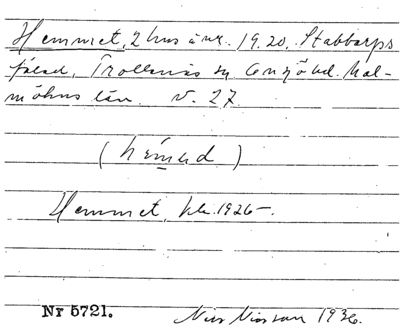 Hemmet, 2 hus å nr. 19. 20. Stabbarps
fälad, Trollenäs sn Onsjö hd. Mal-
möhus län. V. 27
(hémed)
Hemmet, 1926-.
Nr 5721.
Nils Nilsson 1936.